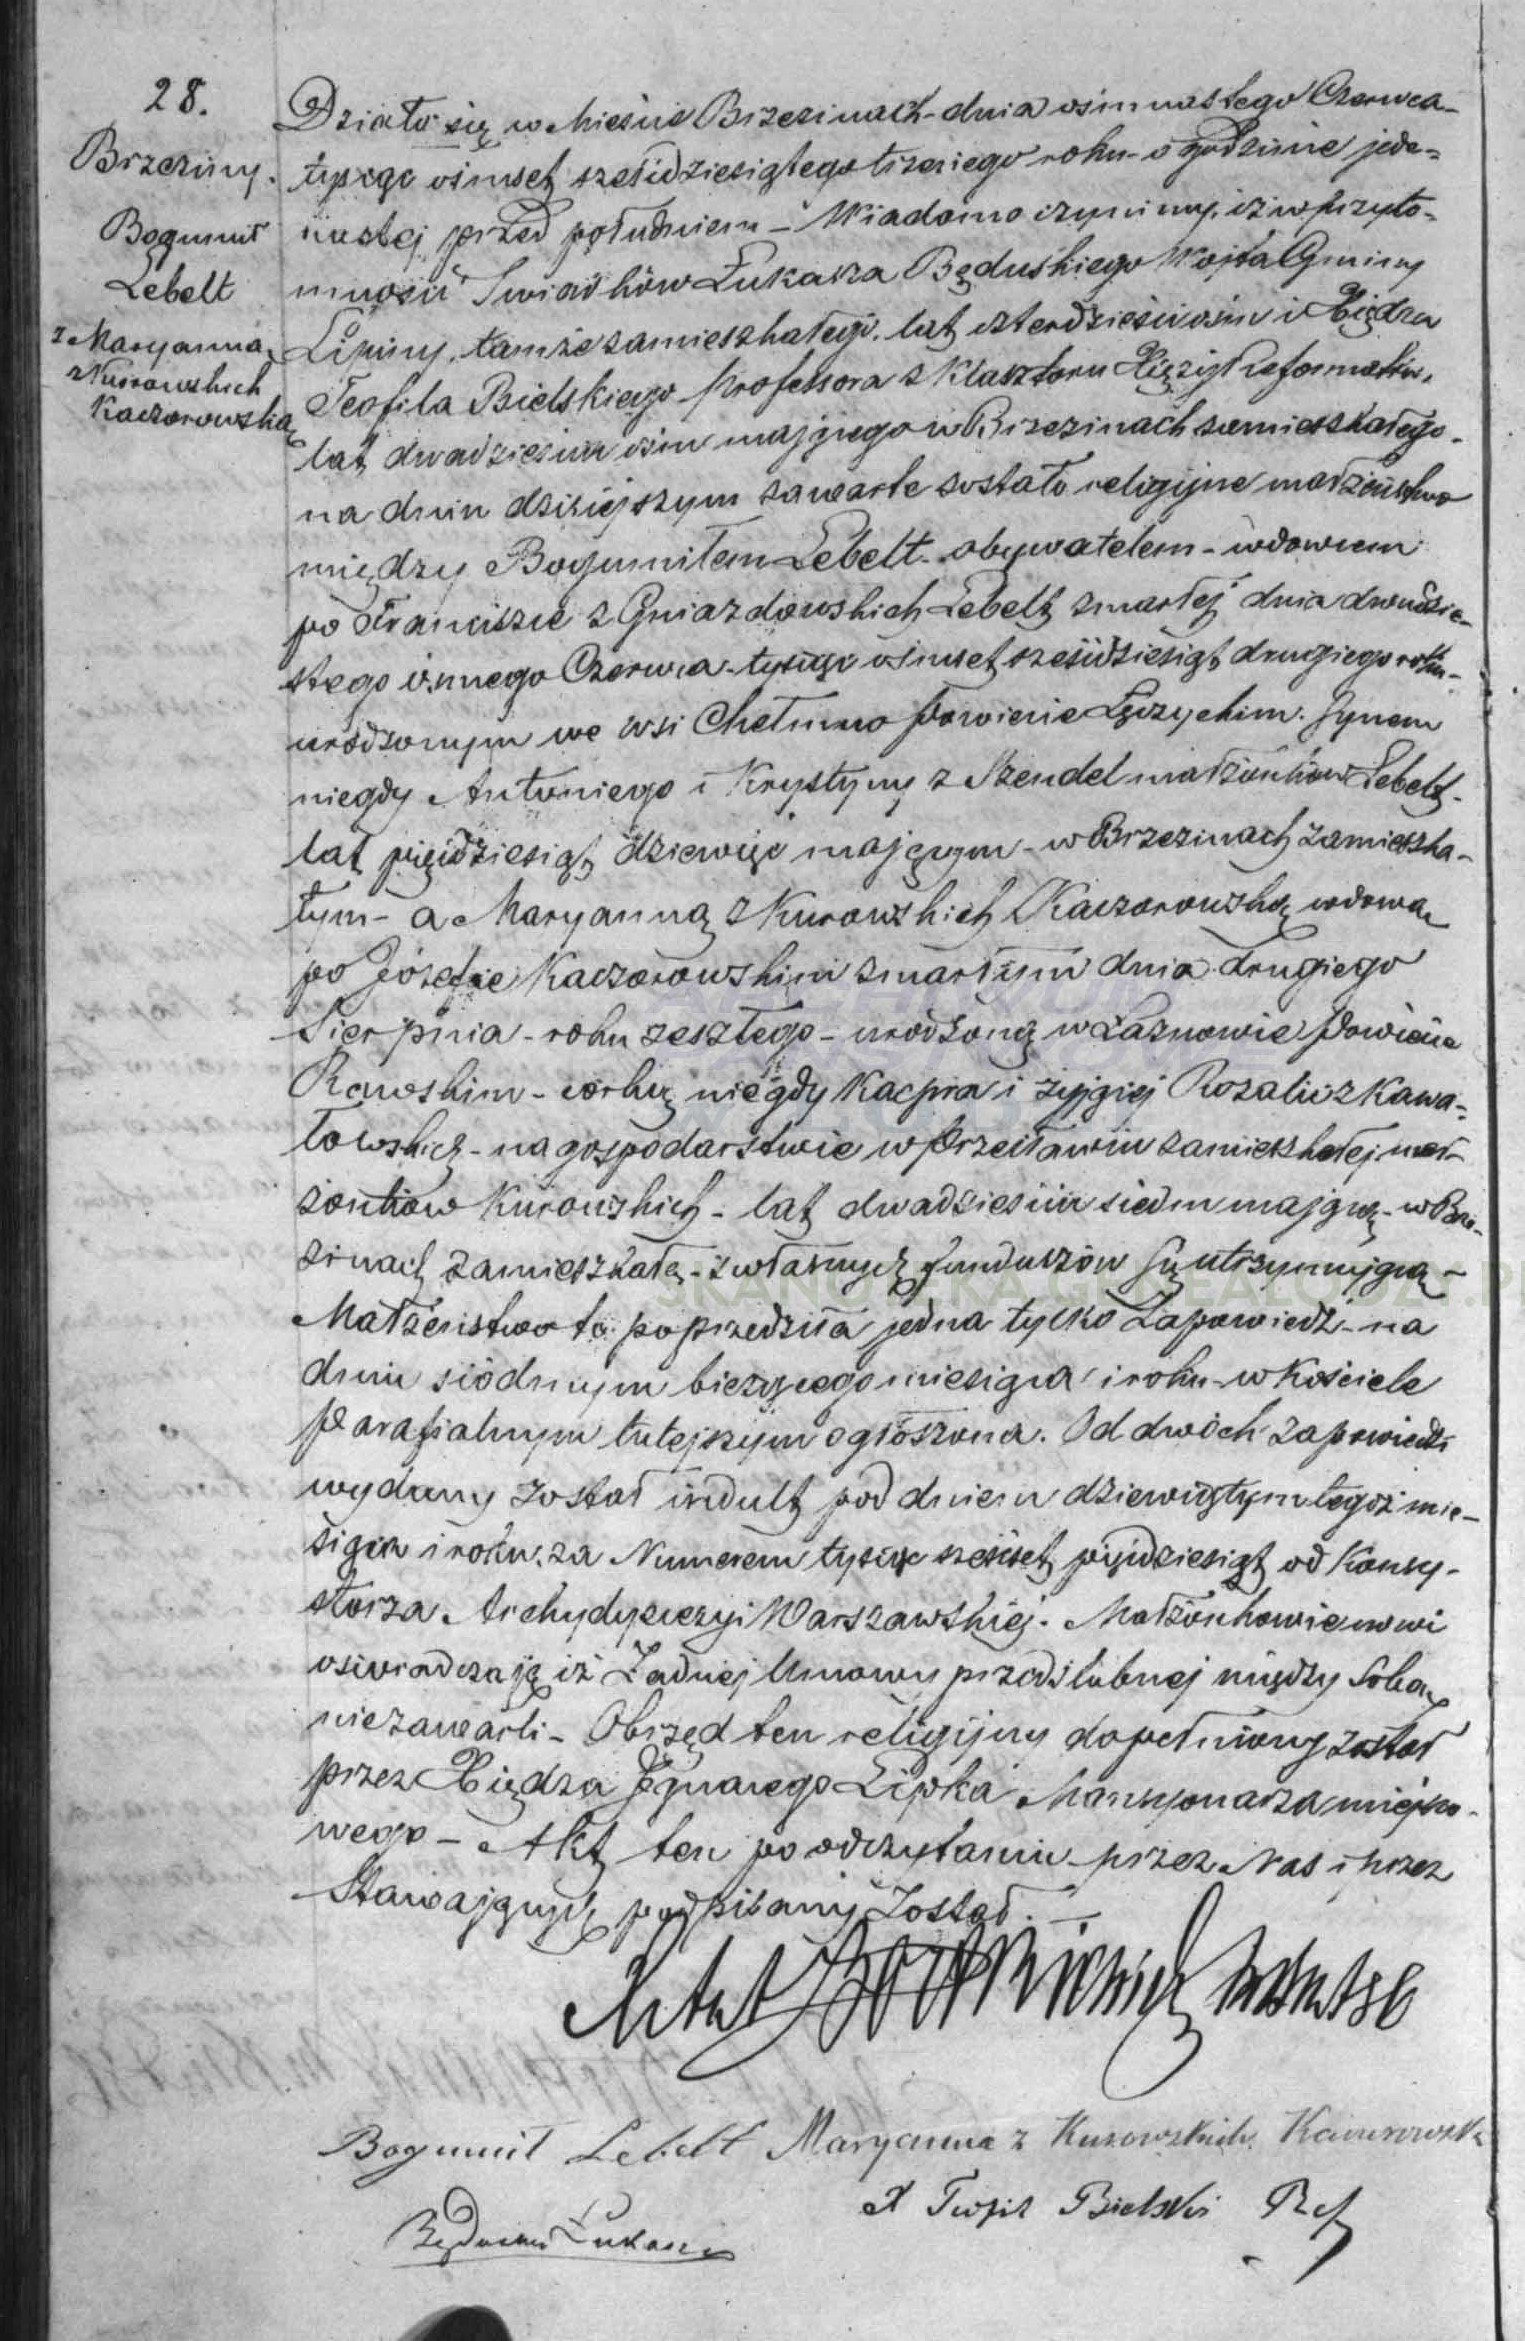 28.
Brzeziny.
Bogumił
Lebelt
z Maryanną
z Kurowskich
Kaczorowską
Działo się w Mieście Brzezinach dnia ośmnastego Czerwca
tysiąc ośmset sześćdziesiątego trzeciego roku o godzinie jede-
nastej przed południem – Wiadomo czynimy, iż w przyto-
mności Świadków Łukasza Będuskiego Wójta Gminy
Lipiny, tamże zamieszkałego, lat czterdzieści ośm i Xiędza
Teofila Bielskiego Professora z Klasztoru Xięży Reformatów,
lat dwadzieścia ośm mającego w Brzezinach zamieszkałego.
na dniu dzisiejszym zawarte zostało religijne małżeństwo
między Bogumiłem Lebelt obywatelem – wdowcem
po Franciszce z Gniazdowskich Lebelt zmarłej dnia dwudzie-
stego ósmego Czerwca tysiąc ośmset sześćdziesiąt drugiego roku –
urodzonym we wsi Chełmno Powiecie Łęczyckim. Synem
niegdy Antoniego i Krystyny z Szendel małżonków Lebelt –
lat pięćdziesiąt dziewięć mającym – w Brzezinach zamieszka-
łym – a Maryanną z Kurowskich Kaczorowską wdową
po Józefie Kaczorowskim zmarłym dnia drugiego
Sierpnia – roku zeszłego – urodzoną w Łaznowie Powiecie
Rawskim – córką niegdy Kacpra i żyjącej Rozalii z Kawa-
łowskich – na gospodarstwie w zamieszkałej mał-
żonków Kurowskich – lat dwadzieścia siedm mającą – w Brze-
zinach zamieszkałą – z własnych funduszów się utrzymującą –
Małżeństwo to poprzedziła jedna tylko Zapowiedź – na
dniu siódmym bieżącego miesiąca i roku – w Kościele
Parafialnym tutejszym ogłoszona. Od dwóch zapowiedzi
wydany został indult pod dniem dziewiątym tegoż mie-
siąca i roku, za Numerem tysiąc sześćset pięćdziesiąt od Konsy-
storza Archydyecezyi Warszawskiej. Małżonkowie nowi
oświadczają iż żadnej Umowy przedślubnej między sobą
niezawarli – Obrzęd ten religijny dopełniony został
przez Xiędza Ignacego Lipka Mansyonarza miejsco-
wego – Akt ten po odczytaniu przez Nas i przez
Stawających podpisany został. –
Bogumił Lebelt Maryanna z Kurowskich Kaczorowska
X Teofil Bielski Ref
Będuski Łukasz
SKANOTEKA.GENEALODZY.P